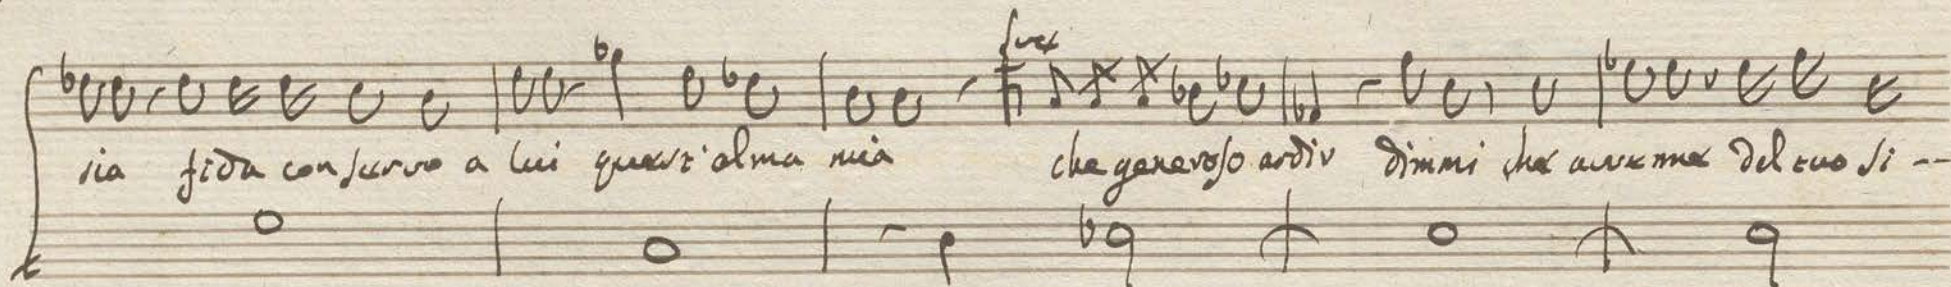 sia fida conservo a lui quest'alma mia che generoso ardir dimmi che avvenne del tuo si --